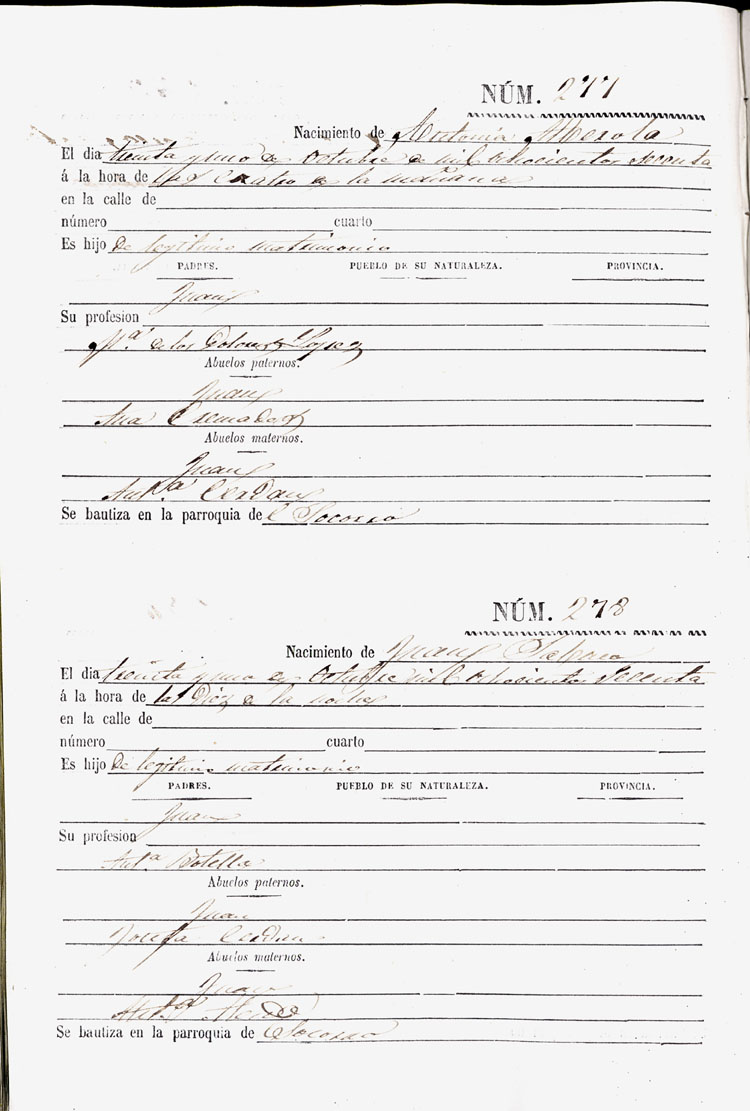 NÚM. 277
Nacimiento de Antonia
El dia treinta y uno de Octubre de mil ochocientos Secenta
á la hora de las Cuatro de la mañana
en la calle de
número cuarto
Es hijo de legitimo matrimonio
PADRES. PUEBLO DE SU NATURALEZA. PROVINCIA.
Juan
Su profesion
Mª. de los Dolores Lopez
Abuelos paternos.
Juan
Ana Cremades
Abuelos maternos.
Juan
Antª Cerdan
Se bautiza en la parroquia de el Socorro
NÚM. 278
Nacimiento de Juan
El dia treinta y uno de Octubre mil ochocientos Secenta
á la hora de las Diez de la noche
en la calle de
número cuarto
Es hijo de legitimo matrimonio
PADRES. PUEBLO DE SU NATURALEZA. PROVINCIA.
Juan
Su profesion
Antª Botella
Abuelos paternos.
Juan
Josefa Cerdan
Abuelos maternos.
Juan
Antª
Se bautiza en la parroquia de el Socorro